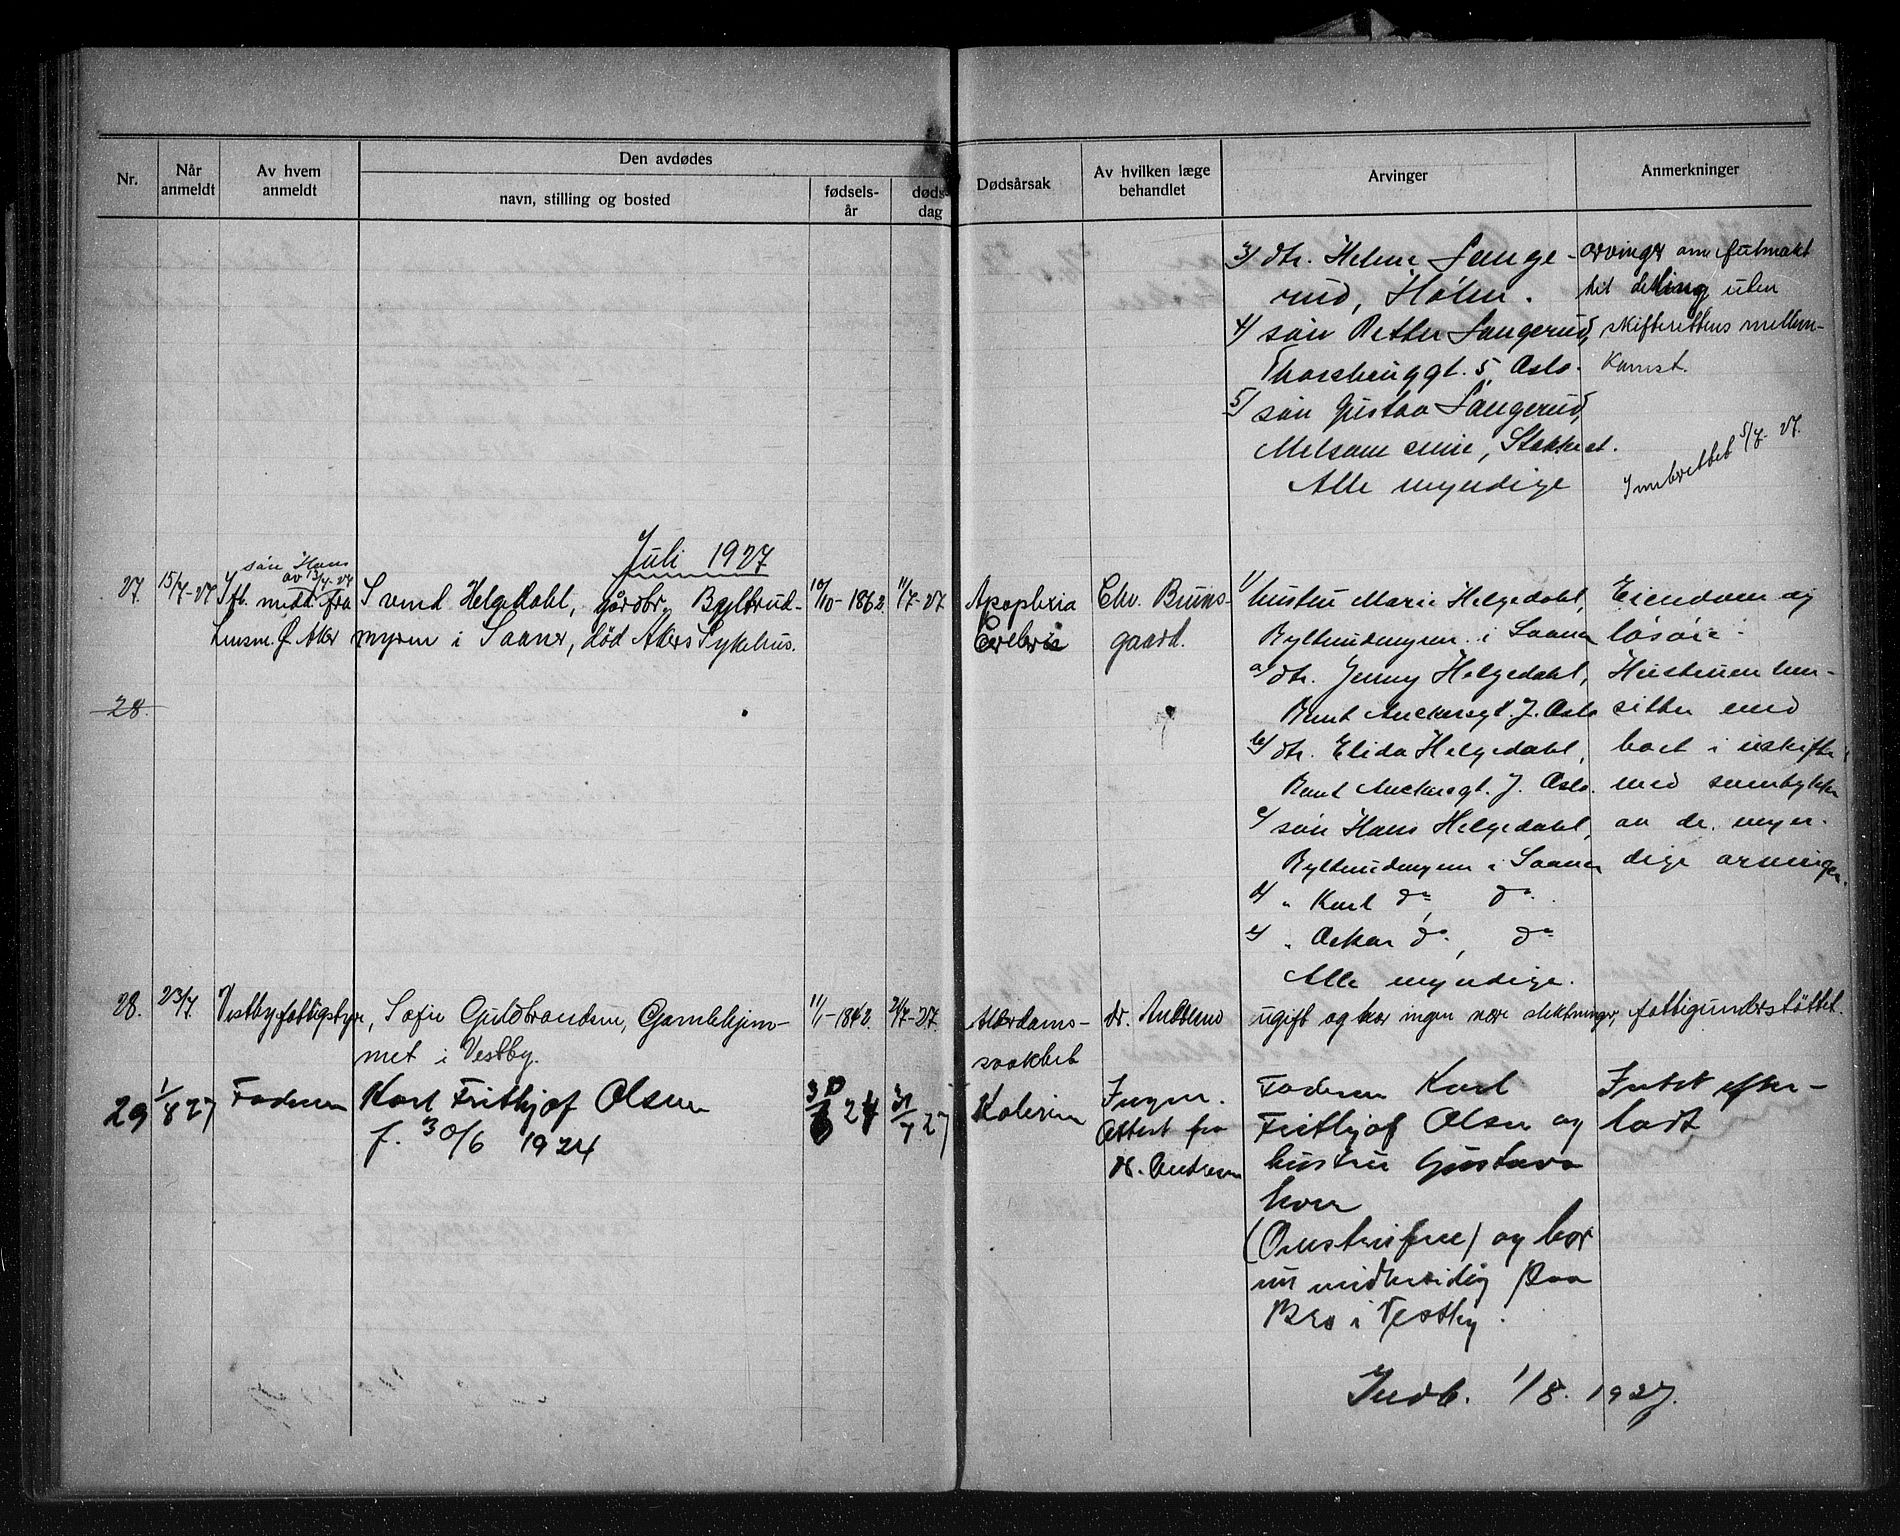 Nr.
Når anmeldt
Av hvem anmeldt
Den avdødes
navn, stilling og bosted
fødsels-år
døds dag
Dødsårsak
Av hvilken læge behandlet
Arvinger
Anmerkninger
3) dtr. Helene Lange-
rud, Hølen.
4) søn Petter Langerud,
5, Oslo.
5) søn Gustav Langerud,
Alle myndige
arvinger om
det deling uten
skifterettens mellem-
komst.
Innberettet 5/7-27.
Juli 1927
27.
15/7-27
søn Hans
av 13/7-27
Ifl. medd. fra
Lensm. Ø. Aker
Svend Helgedahl, gårdbr. Byltrud-
myren i Saaner, død Akers Sykehus.
10/10-1862
11/7-27
Apoplexia
Cerebris
Chr. Bruns-
gaard.
1/ hustru Marie Helgedahl,
Byltrudmyren i Saaner
a) dtr. Jenny Helgedahl,
Bernt Ankersgt. 7. Oslo
b) dtr. Elida Helgedahl,
Bernt Ankersgt. 7. Oslo.
c) søn Hans Helgedahl,
Byltrudmyren i Saaner
d) " Karl do, do.
e) " Oskar do, do
Alle myndige.
Eiendom og
løsøre.
Hustruen hen-
sitter med
boet i uskifte
med samtykke
av de myn-
dige arvinger.
28.
28.
23/7.
Vestby fattigstyre,
Sofie Guldbrandsen, Gamlehjem-
met i Vestby.
21/7-27.
Alderdoms-
svakhet
dr.
ugift og har ingen nære slektninger, fattigunderstøttet.
29
1/8 27
Faderen
Karl Frithjof Olsen
f. 30/6 1924
30/6 24
31/7 27
Kolerine
Ingen.
Attest fra
dr. Andresen
Faderen Karl
Frithjof Olsen og
hustru Gustava
(Omstreifere) og bor
nu midlertidig paa
i Vestby.
Intet efter-
ladt
Indb. 1/8. 1927.